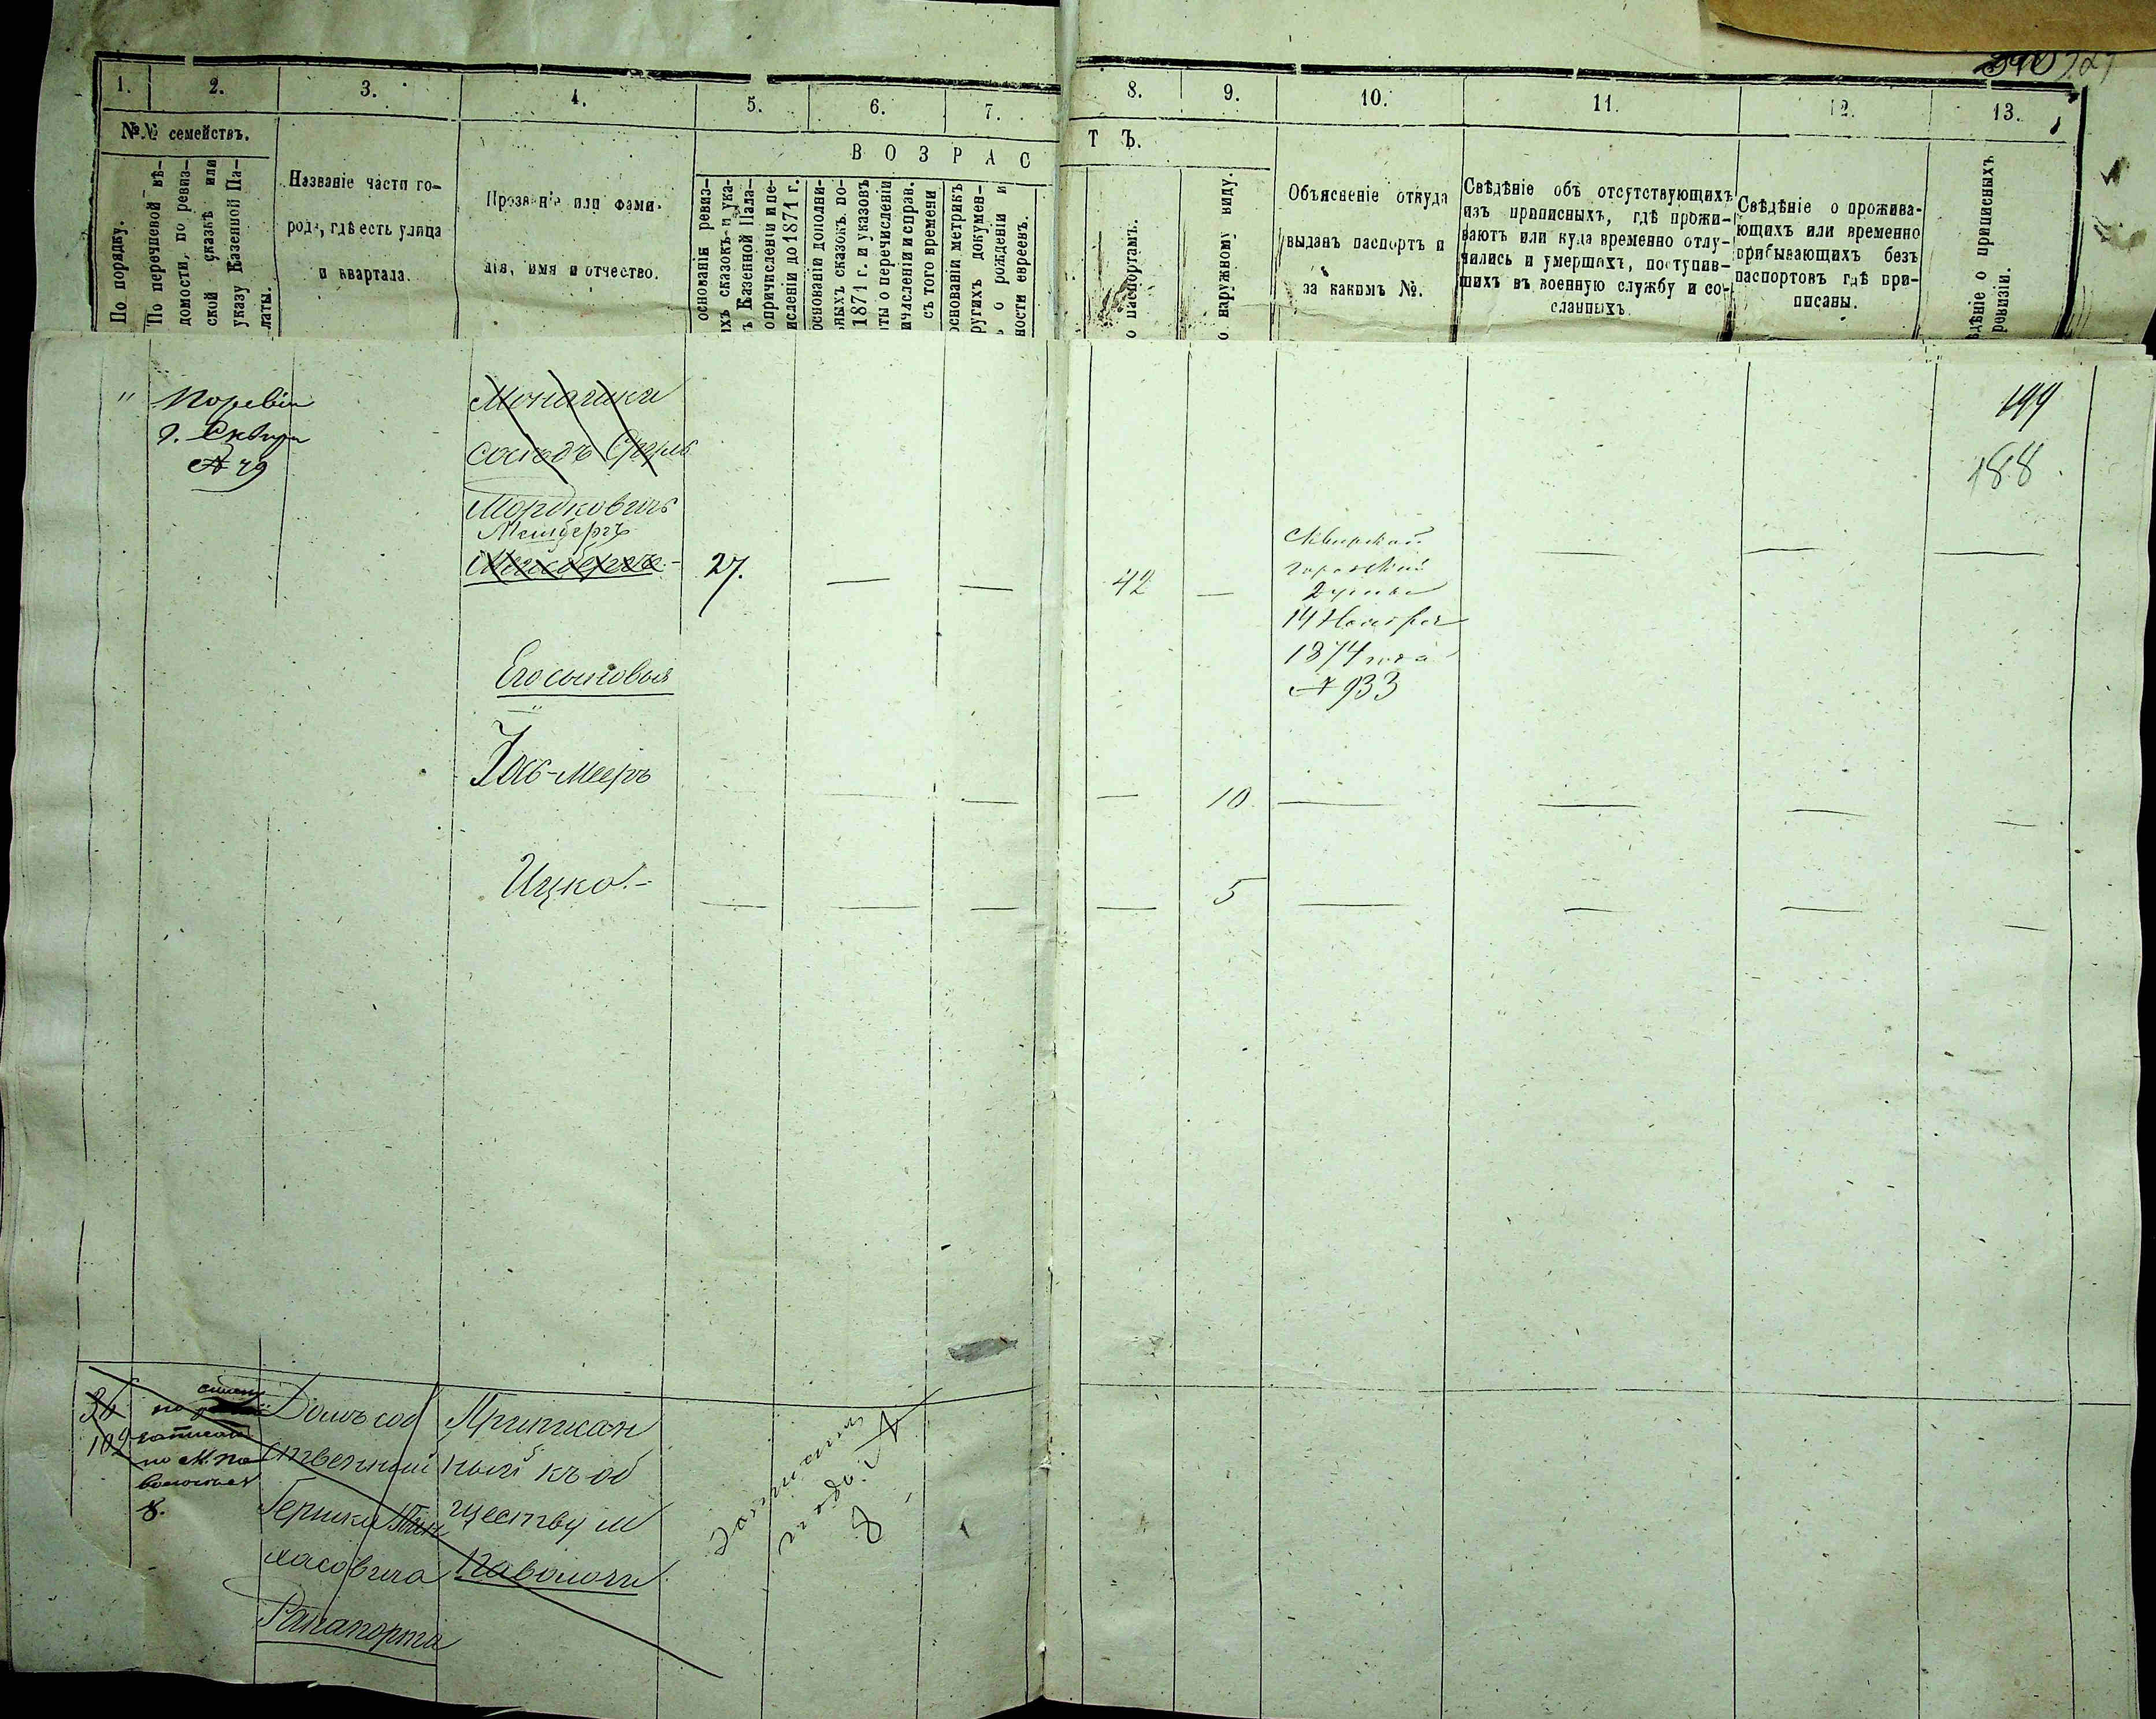 1.
2.
3.
4.
5.
6.
7.
8.
9.
10.
11.
12.
13.
№№ семействъ.
По порядку.
По перечневой вѣ-
домости, по ревиз-
ской сказкѣ или
указу Казенной Па-
латы.
Названіе части го-
рода, гдѣ есть улица
и квартала.
Прозваніе или фами-
лія, имя и отчество.
ВОЗРАС
ТЪ.
основанія ревиз-
хъ сказокъ и ука-
ъ Казенной Пала-
о причисленіи и пе-
исленіи до 1871 г.
основаніи дополни-
ныхъ сказокъ по-
1871 г. и указовъ
ты о перечисленіи
ичисленіи и справ.
съ того времени
основаніи метрикъ
ругихъ докумен-
ъ о рожденіи и
ности евреевъ.
о паспортамъ.
о наружному виду.
Объясненіе откуда
выданъ паспортъ и
за какимъ №.
Свѣдѣніе объ отсутствующихъ
изъ приписныхъ, гдѣ прожи-
ваютъ или куда временно отлу-
чились и умершихъ, поступив-
шихъ въ военную службу и со-
сланныхъ.
Свѣдѣніе о прожива-
ющихъ или временно
прибывающихъ безъ
паспортовъ гдѣ при-
писаны.
ѣдѣніе о приписныхъ
ревизіи.
" По ревіи
г. Сквири
№ 49
Мордковичъ
27.
42
Сквирской
городской
Думы
14 Ноября
1874 года
№ 933
199
188.
Его сыновья
Іось-Мееръ
10
Ицко.-
5
36
109
записан
по М. Па
волочьѣ
8.
Домъ соб
ственный
Гершка Пин
хасовича
Рапапорта
Приписан
ный къ об
ществу м
Паволочи